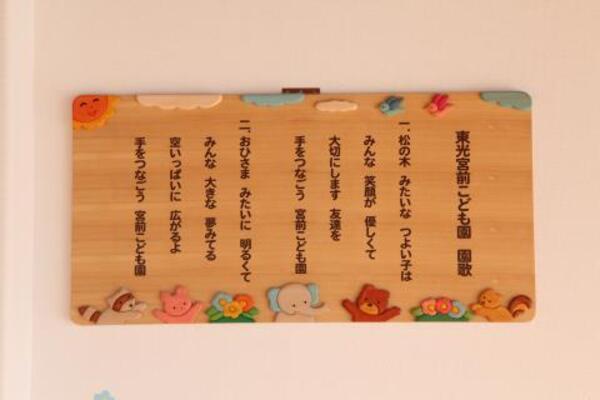 東光宮前こども園　園歌
一、松の木　みたいな　つよい子は
みんな　笑顔が　優しくて
大切にします　友達を
手をつなごう　宮前こども園
二、おひさま　みたいに　明るくて
みんな　大きな　夢みてる
空いっぱいに　広がるよ
手をつなごう　宮前こども園